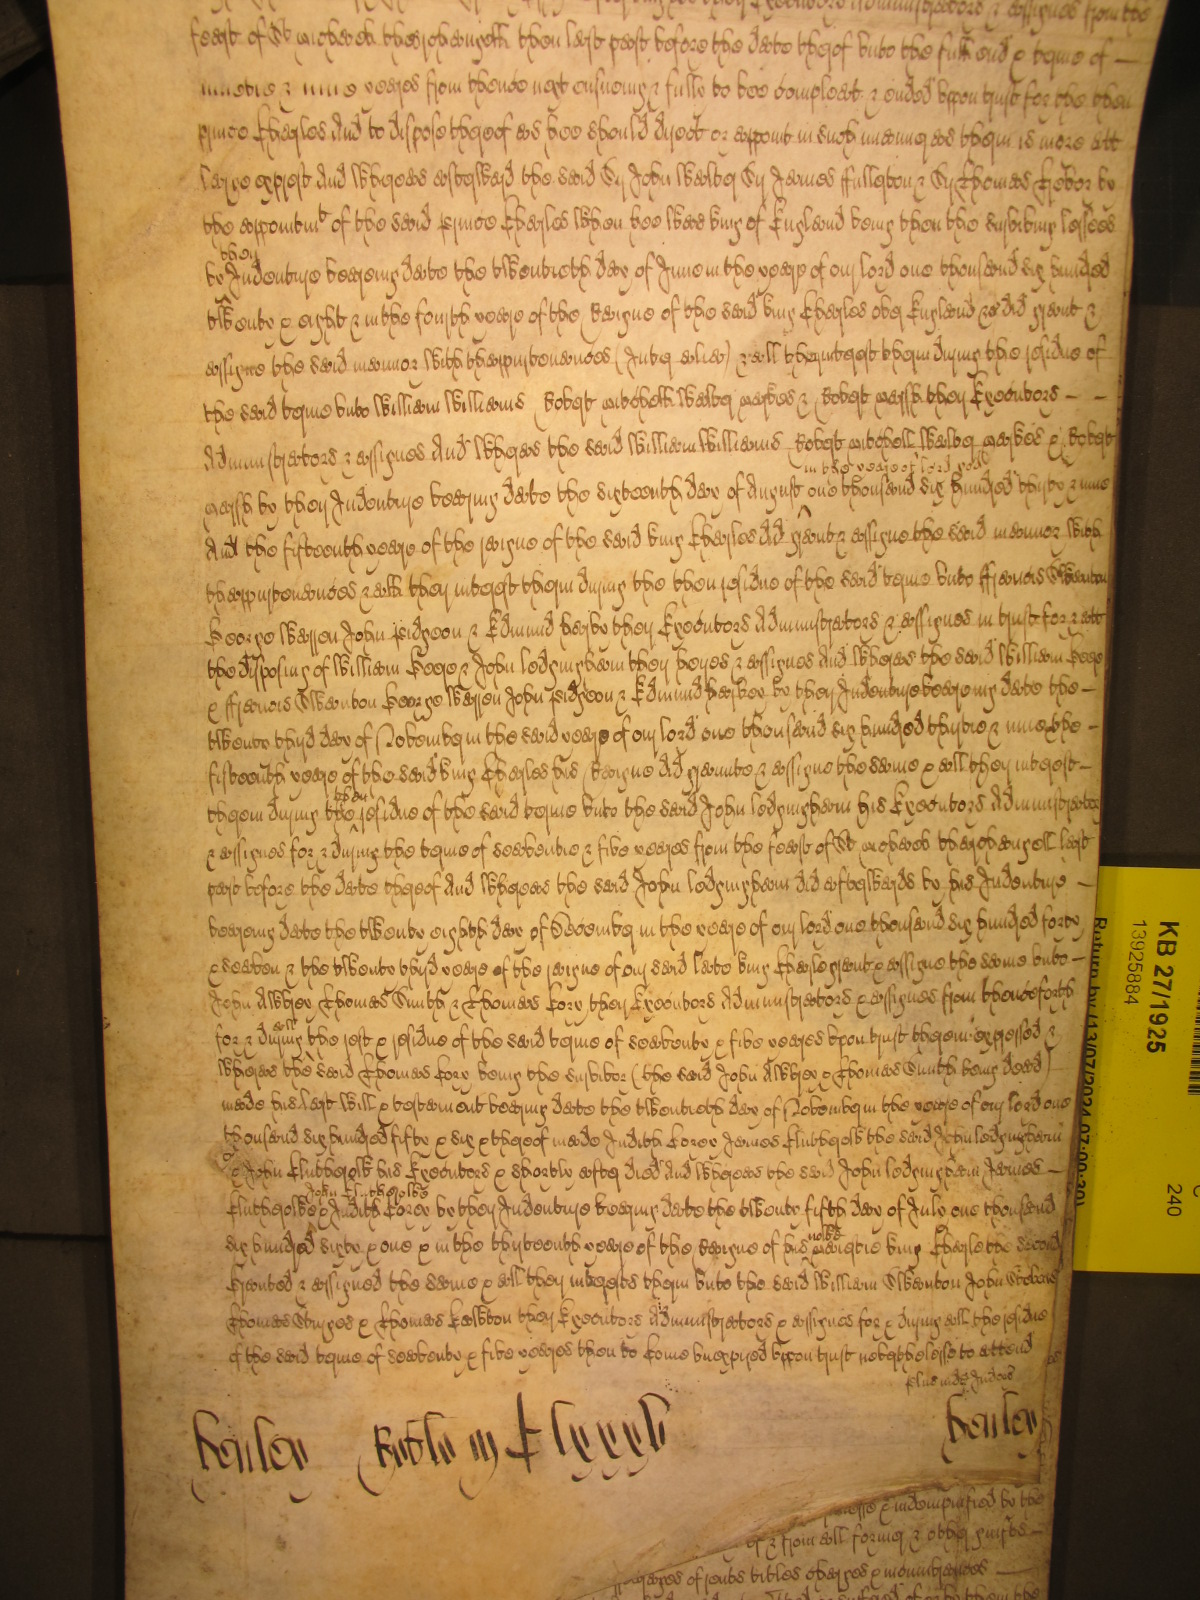 Executors Administrators & assignes from the
feast of St Michaell tharchangell then last past before the date therof unto the full end & terme of —
ninetie & nine yeares from thence next ensueing & fully to bee compleat & ended uppon trust for the then
prince Charles And to dispose therof as hee should direct or appoint in such manner as therin is more att
large exprest And whereas afterward the said Sr John Walter Sr James ffullerton & Sr Thomas Trevor by
the appointmt of the said prince Charles when hee was king of England being then the surviving lessees
then
by Indenture beareing date the twentieth day of June in the yeare of our lord one thousand six hundred
twenty & eight & in the fourth yeare of the Raigne of the said king Charles over England &c did grant &
assigne the said mannor with thappurtenances (Inter alia) & all their interest therin during the residue of
the said terme unto William Williams Robert Mitchell Walter Markes & Robert Marsh their Executors — —
Administrators & assignes And whereas the said William Williams Robert Mitchell Walter Markes & Robert
in the yeare of lord god
Marsh by their Indenture beareing date the sixteenth day of August one thousand six hundred thirty & nine
And the fifteenth yeare of the raigne of the said king Charles did grant & assigne the said mannor with
thappurtenances & all their interest therin during the then residue of the said terme unto ffrancis Swanton
George Warren John Pidgeon & Edmund Harvey their Executors Administrators & assignes in trust for & att
the disposing of William Geere & John Lodgingham their heires & assignes And whereas the said William Geere
& ffrancis Swanton George Warren John Pidgeon & Edmund Harvey by their Indenture beareing date the —
twenty third day of November in the said yeare of our lord one thousand six hundred thirtie & nine & the —
fifteenth yeare of the said king Charles his Raigne did graunte & assigne the same & all their interest —
then
therin during the residue of the said terme unto the said John Lodgingham his Executors Administrators
& assignes for & during the terme of seaventie & five yeares from the feast of St Michaell tharchangell last
past before the date therof And whereas the said John Lodgingham did afterwards by his Indenture —
beareing date the twenty eighth day of December in the yeare of our lord one thousand six hundred forty
& seaven & the twenty third yeare of the raigne of our said late king Charles grant & assigne the same unto —
John Awbrey Thomas Smith & Thomas Cory their Executors Administrators & assignes from thenceforth
all
for & during the rest & residue of the said terme of seaventy & five yeares upon trust therein expressed &
whereas the said Thomas Cory being the survivor (the said John Awbrey & Thomas Smith being dead)
made his last will & testament bearing date the twentieth day of November in the yeare of our lord one
thousand six hundred fifty & six & therof made Judith Corey James Clutherow the said John Lodgingham
& John Clutherow his Executors & shortly after died And whereas the said John Lodgingham James —
John Clutherowe
Clutherowe & Judith Corey by their Indenture bearing date the twenty fifth day of July one thousand
nowe
six hundred sixty & one & in the thirteenth yeare of the Raigne of his Majestie king Charles the second
Granted & assigned the same & all their interests therin unto the said William Swanton John Stevens
Thomas & Thomas their Executors Administrators & assignes for & during all the residue
of the said terme of seaventy & five yeares then to come unexpired uppon trust nevertheles to attend
Henley Rotlo m Henley
& indempnified by the
& from all former & other guifts —
of joints titles charges & incumbrances —
KB 27/1925
13925884
240